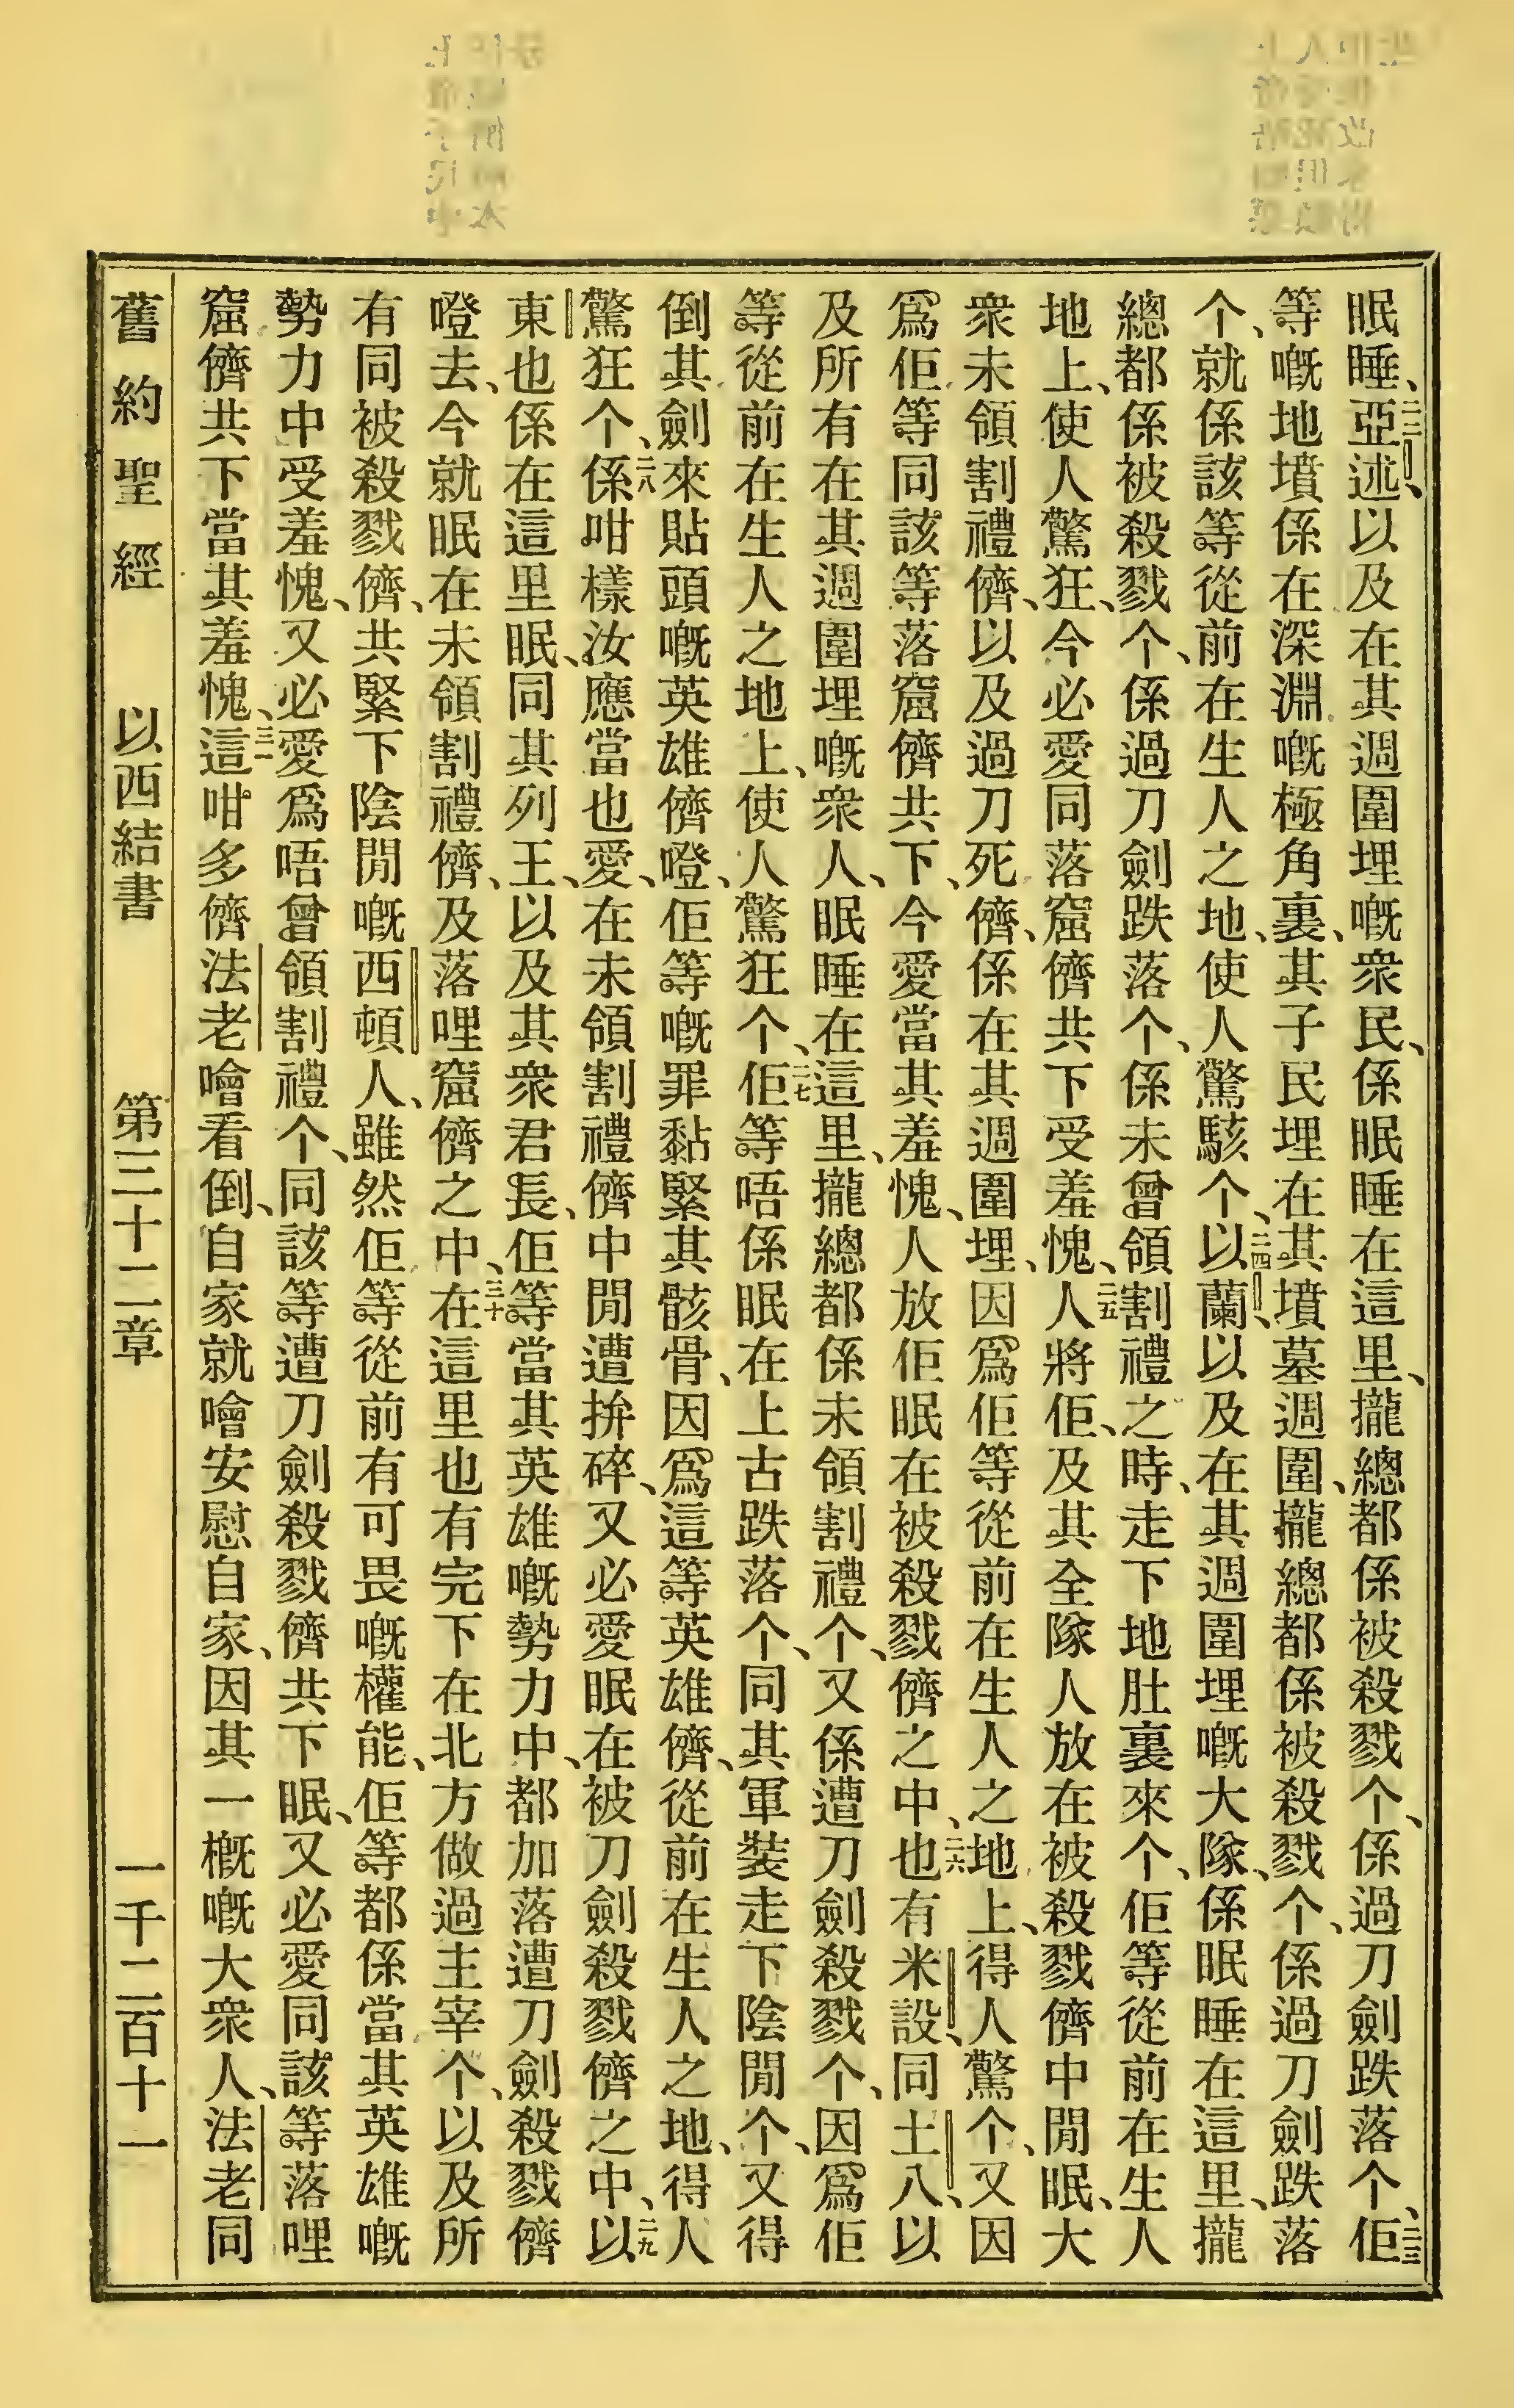 眠睡、二二亞述、以及在其週圍埋嘅衆民、係眠睡在這里、攏總都係被殺戮个、係過刀劍跌落个、二三佢
等嘅地墳係在深淵嘅極角裏、其子民埋在其墳墓週圍、攏總都係被殺戮个、係過刀劍跌落
个、就係該等從前在生人之地、使人驚駭个、二四以蘭、以及在其週圍埋嘅大隊、係眠睡在這里、攏
總都係被殺戮个、係過刀劍跌落个、係未曾領割禮之時、走下地肚裏來个、佢等從前在生人
地上、使人驚狂、今必愛同落窟儕共下受羞愧、二五人將佢、及其全隊人放在被殺戮儕中閒眠、大
衆未領割禮儕、以及過刀死儕、係在其週圍埋、因爲佢等從前在生人之地上、得人驚个、又因
爲佢等同該等落窟儕共下、今愛當其羞愧、人放佢眠在被殺戮儕之中、二六也有米設、同土八、以
及所有在其週圍埋嘅衆人、眠睡在這里、攏總都係未領割禮个、又係遭刀劍殺戮个、因爲佢
等從前在生人之地上、使人驚狂个、二七佢等唔係眠在上古跌落个、同其軍裝走下陰閒个、又得
倒其劍來貼頭嘅英雄儕、噔佢等嘅罪黏緊其骸骨、因爲這等英雄儕、從前在生人之地、得人
驚狂个、二八係咁樣汝應當也愛、在未領割禮儕中閒遭拚碎、又必愛眠在被刀劍殺戮儕之中、二九以
東也係在這里眠、同其列王、以及其衆君長、佢等當其英雄嘅勢力中、都加落遭刀劍殺戮儕
噔去、今就眠在未領割禮儕、及落哩窟儕之中、三十在這里也有完下在北方做過主宰个、以及所
有同被殺戮儕、共緊下陰閒嘅西頓人、雖然佢等從前有可畏嘅權能、佢等都係當其英雄嘅
勢力中受羞愧、又必愛爲唔曾領割禮个、同該等遭刀劍殺戮儕共下眠、又必愛同該等落哩
窟儕共下當其羞愧、三一這咁多儕法老噲看倒、自家就噲安慰自家、因其一概嘅大衆人、法老同
舊約聖經 以西結書 第三十二章 一千二百十一